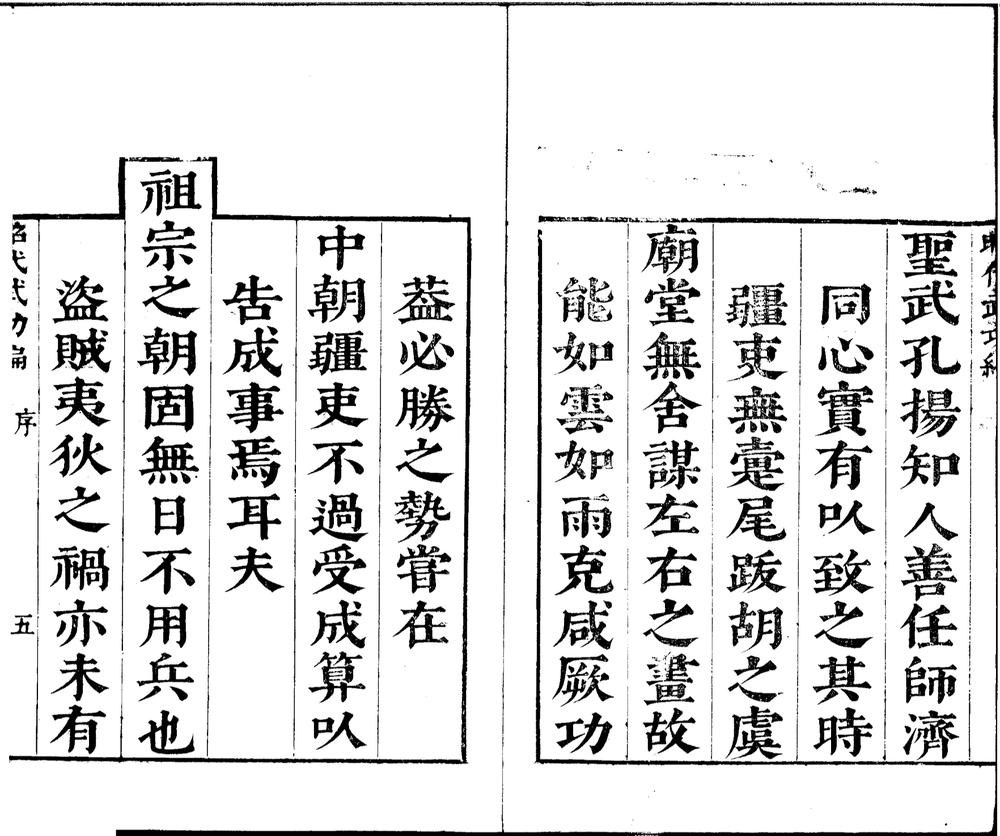 昭代武功編
聖武孔揚知人善任師濟
同心實有以致之其時
疆吏無疐尾跋胡之虞
廟堂無舍謀左右之畫故
能如雲如雨克咸厥功
葢必勝之勢嘗在
中朝疆吏不過受成算以
告成事焉耳夫
祖宗之朝固無日不用兵也
盜賊夷狄之禍亦未有
昭代武功編 序 五